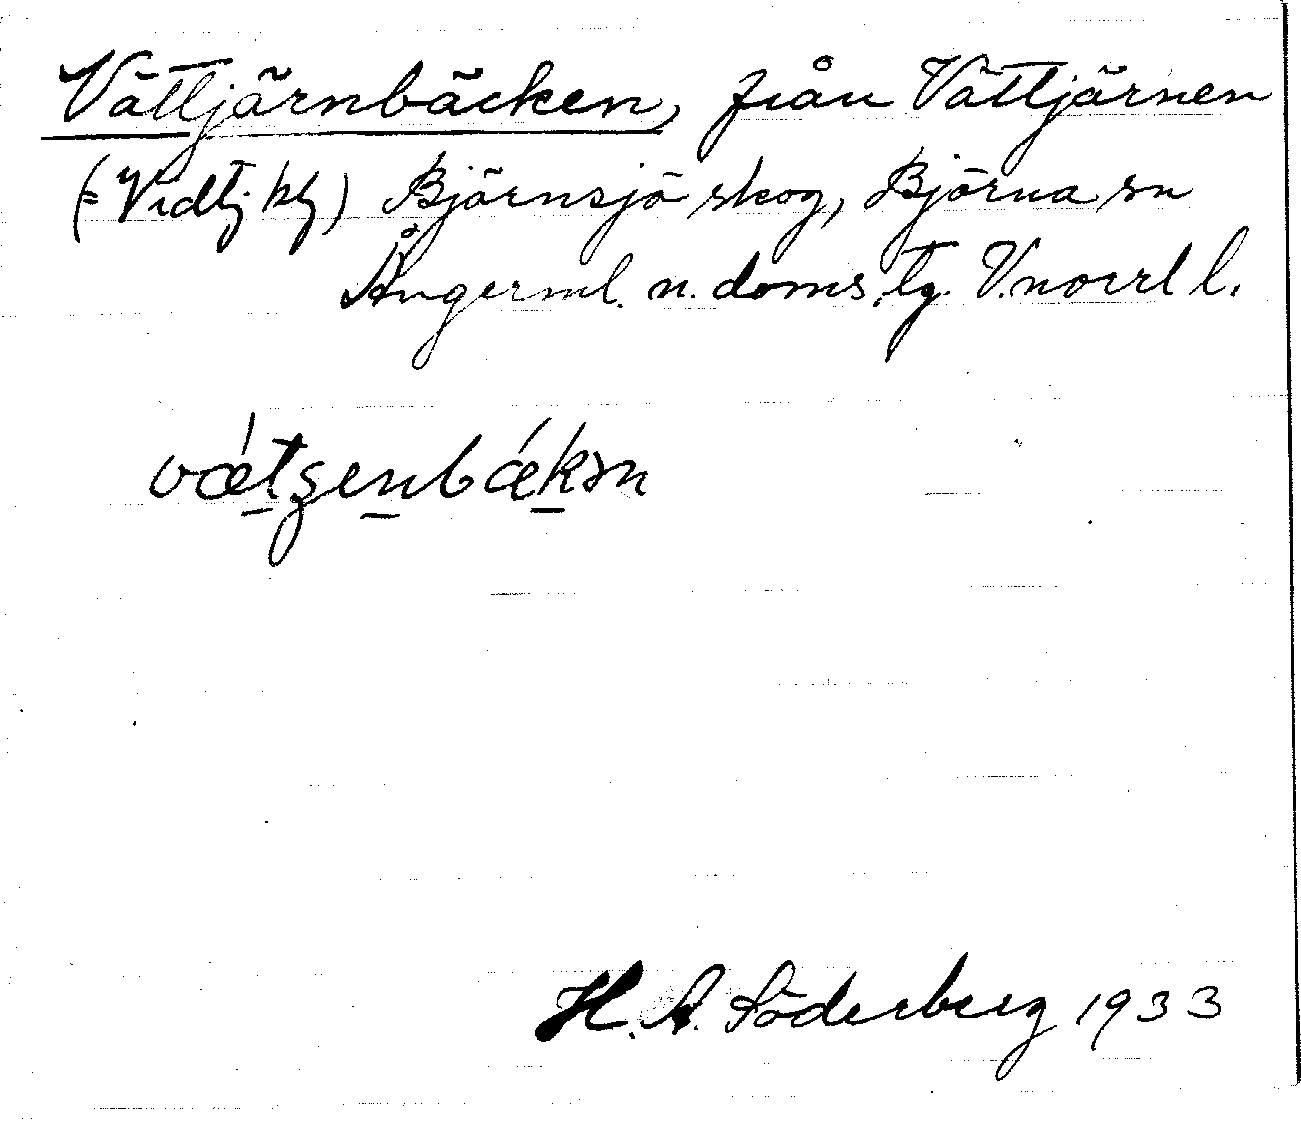 Vättjärnbäcken, från Vättjärnen
(= Vidtj kg) Björnsjö skog, Björna sn
Ångerml. n. doms. tg. V.norrl l.
vǽtʒenbǽkən
H. A. Söderberg 1933